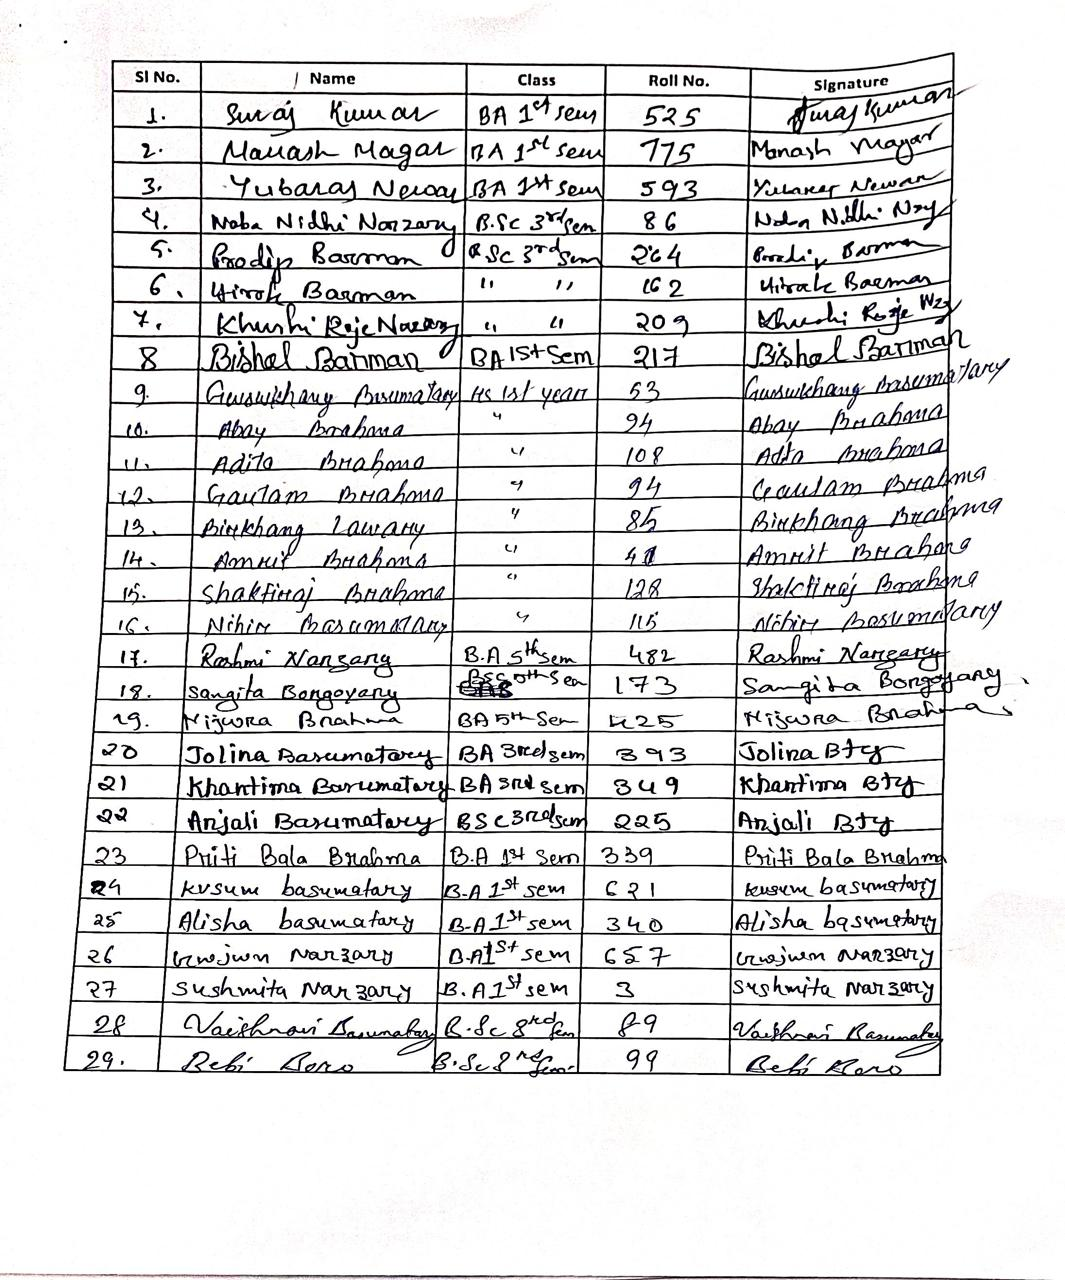 Sl No. Name Class Roll No. Signature
1. Suraj Kumar BA 1st sem 525 Suraj Kumar
2. Manash Magar BA 1st sem 775 Manash Magar
3. Yubaraj Newar BA 1st sem 593 Yubaraj Newar
4. Naba Nidhi Narzary B.Sc 3rd sem 86 Naba Nidhi Nzy
5. Prodip Barman B.Sc 3rd sem 264 Prodip Barman
6. Hirak Barman " " 162 Hirak Barman
7. Khushi Roje Narzary " " 209 Khushi Roje Nzy
8 Bishal Barman BA 1st Sem 217 Bishal Barman
9. Gwswkhang Basumatary HS 1st year 53 Gwswkhang Basumatary
10. Abay Brahma " 94 Abay Brahma
11. Adita Brahma " 108 Adita Brahma
12. Gautam Brahma " 94 Gautam Brahma
13. Birkhang Lawary " 85 Birkhang Brahma
14. Amrit Brahma " Amrit Brahma
15. Shaktiraj Brahma " 128 Shaktiraj Brahma
16. Nihir Basumatary " 115 Nihir Basumatary
17. Rashmi Narzary B.A 5th sem 482 Rashmi Narzary
18. Sangita Borgoyary BSC 5th Sem 173 Sangita Borgoyary
19. Nijwra Brahma BA 5th Sem 425 Nijwra Brahma
20 Jolina Basumatary BA 3rd sem 393 Jolina Bty
21 Khantima Basumatary BA 3rd sem 349 Khantima Bty
22 Anjali Basumatary BSc 3rd sem 225 Anjali Bty
23 Priti Bala Brahma B.A 1st Sem 339 Priti Bala Brahma
24 kusum basumatary B.A 1st sem 621 kusum basumatary
25 Alisha basumatary B.A 1st sem 340 Alisha basumatary
26 Gwjwn Narzary B.A 1st sem 657 Gwjwn Narzary
27 Sushmita Narzary B.A 1st sem 3 Sushmita Narzary
28 Vaishnavi Basumatary B.Sc 3rd Sem 89 Vaishnavi Basumatary
29. Bebi Boro B.Sc 3rd Sem. 99 Bebi Boro